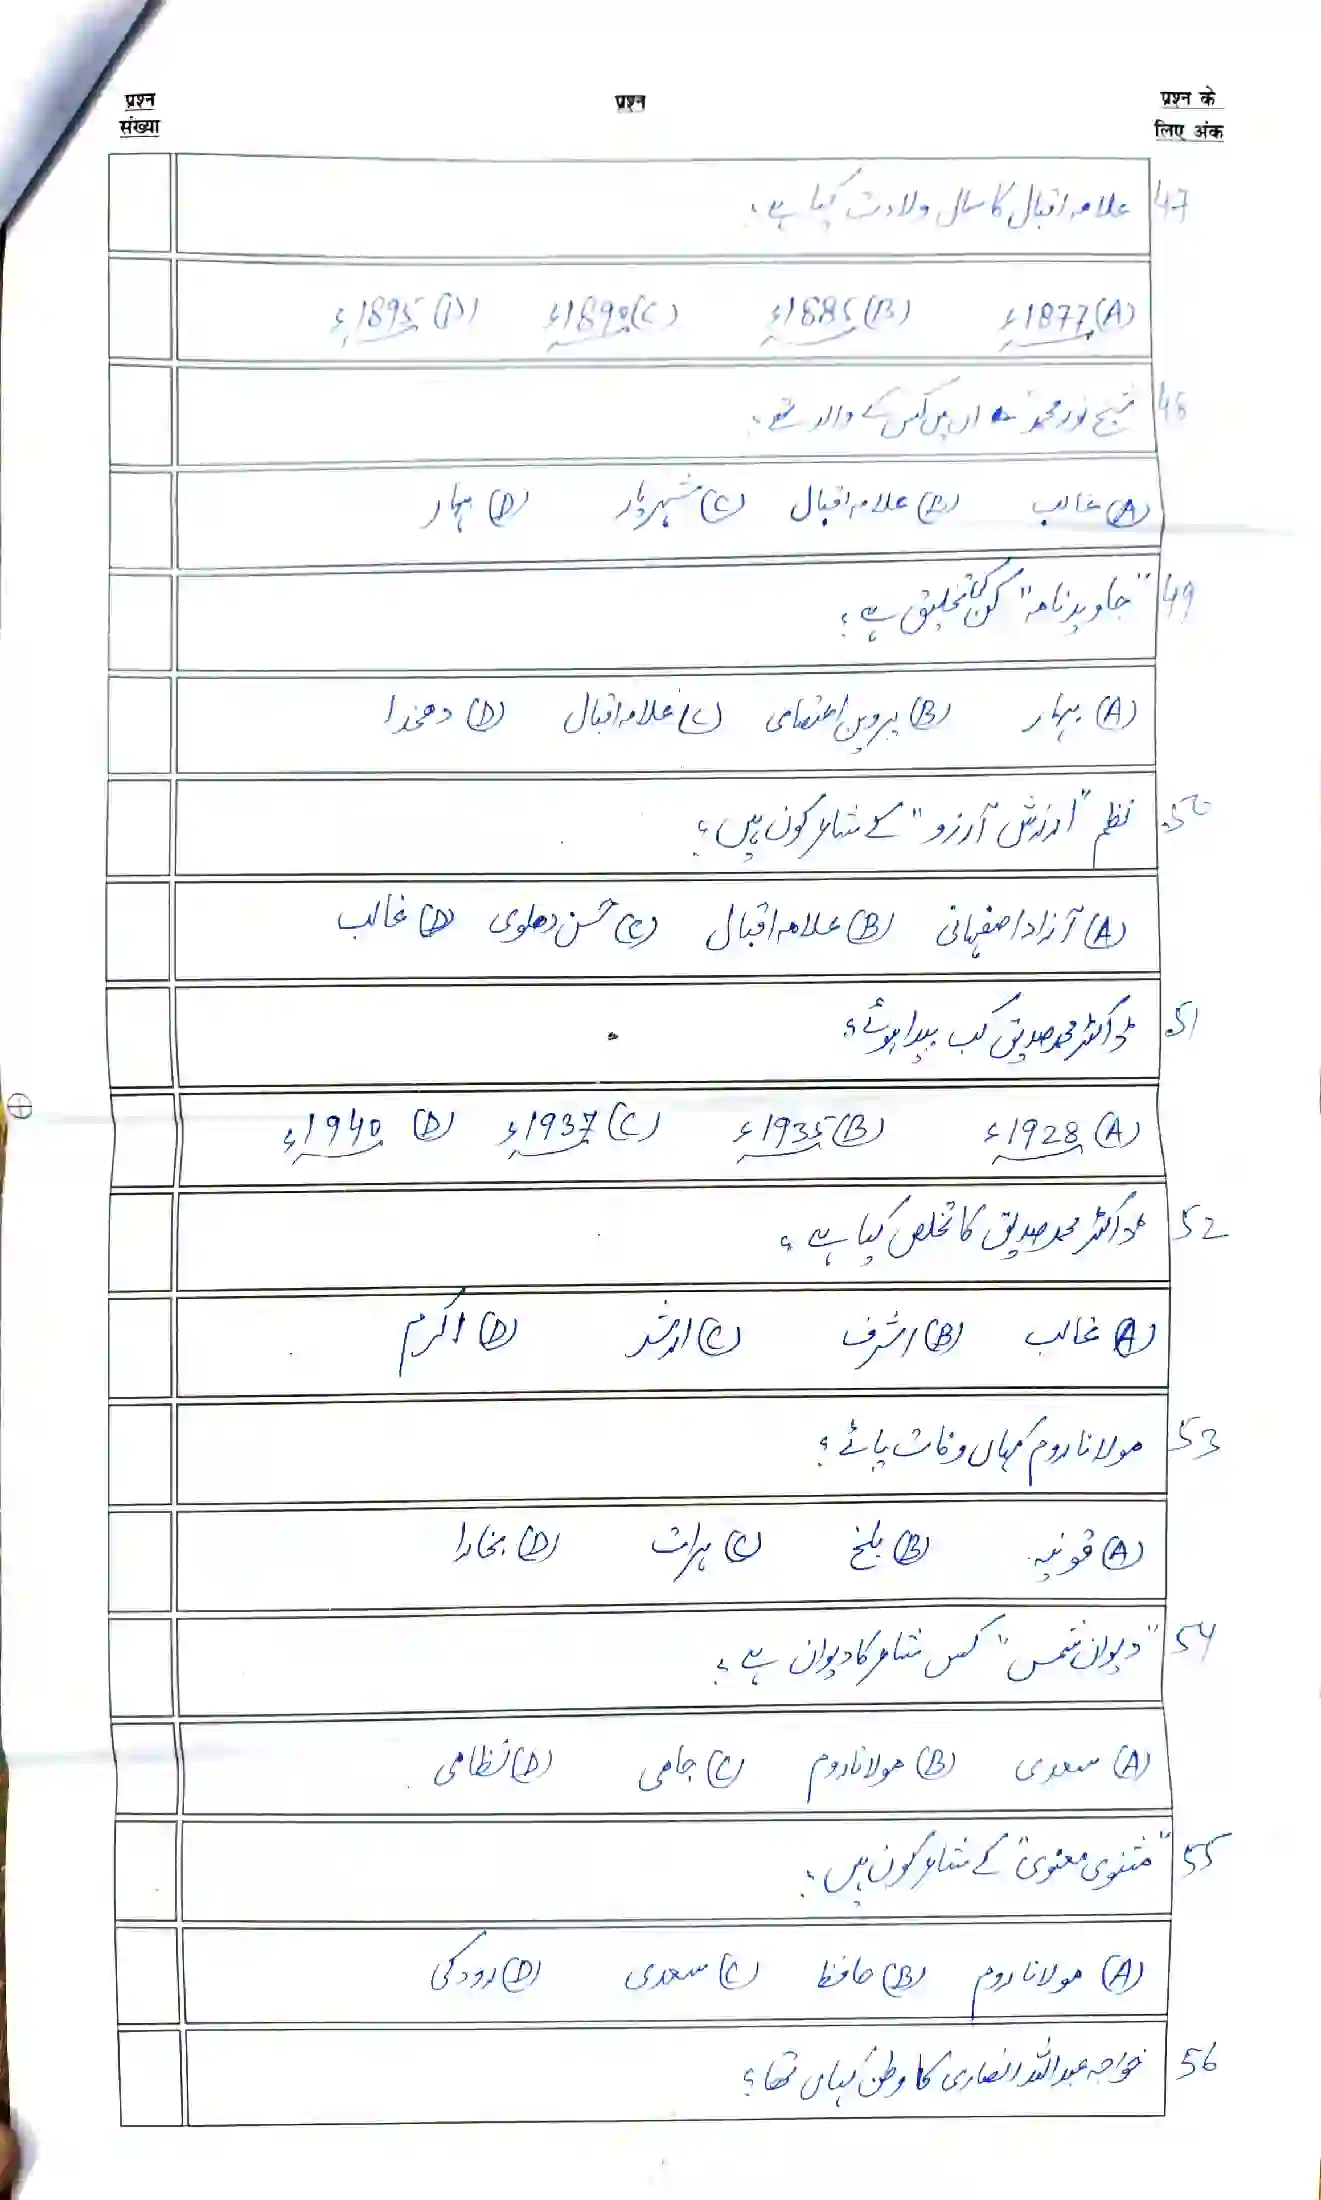 प्रश्न संख्या
प्रश्न
प्रश्न के लिए अंक
47 علامہ اقبال کا سال ولادت کیا ہے؟
(A) 1877ء (B) 1885ء (C) 1890ء (D) 1895ء
48 شیخ نور محمد ان میں کس کے والد تھے؟
(A) غالب (B) علامہ اقبال (C) شہریار (D) بہار
49 "جاوید نامہ" کن کی تخلیق ہے؟
(A) بہار (B) پروین اعتصامی (C) علامہ اقبال (D) دهخدا
50. نظم "ارزش آرزو" کے شاعر کون ہیں؟
(A) آزاد اصفہانی (B) علامہ اقبال (C) حسن دہلوی (D) غالب
51. ڈاکٹر محمد صدیق کب پیدا ہوئے؟
(A) 1928ء (B) 1935ء (C) 1937ء (D) 1940ء
52 ڈاکٹر محمد صدیق کا تخلص کیا ہے؟
(A) غالب (B) اشرف (C) ارشد (D) اکرم
53 مولانا روم کہاں وفات پائے؟
(A) قونیہ (B) بلخ (C) ہرات (D) بخارا
54 "دیوان شمس" کس شاعر کا دیوان ہے؟
(A) سعدی (B) مولانا روم (C) جامی (D) نظامی
55 "مثنوی معنوی" کے شاعر کون ہیں؟
(A) مولانا روم (B) حافظ (C) سعدی (D) رودکی
56 خواجہ عبداللہ انصاری کا وطن کہاں تھا؟